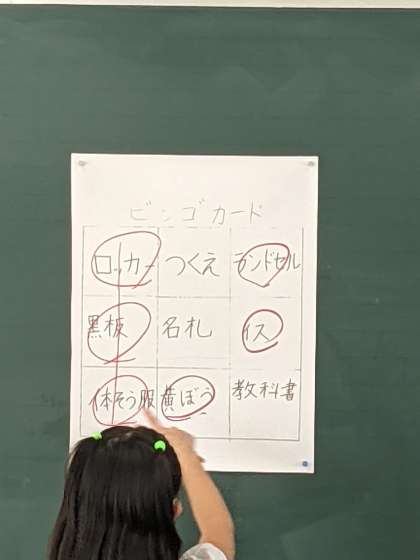 ビンゴカード
ロッカー つくえ ランドセル
黒板 名札 イス
体そう服 黄ぼう 教科書